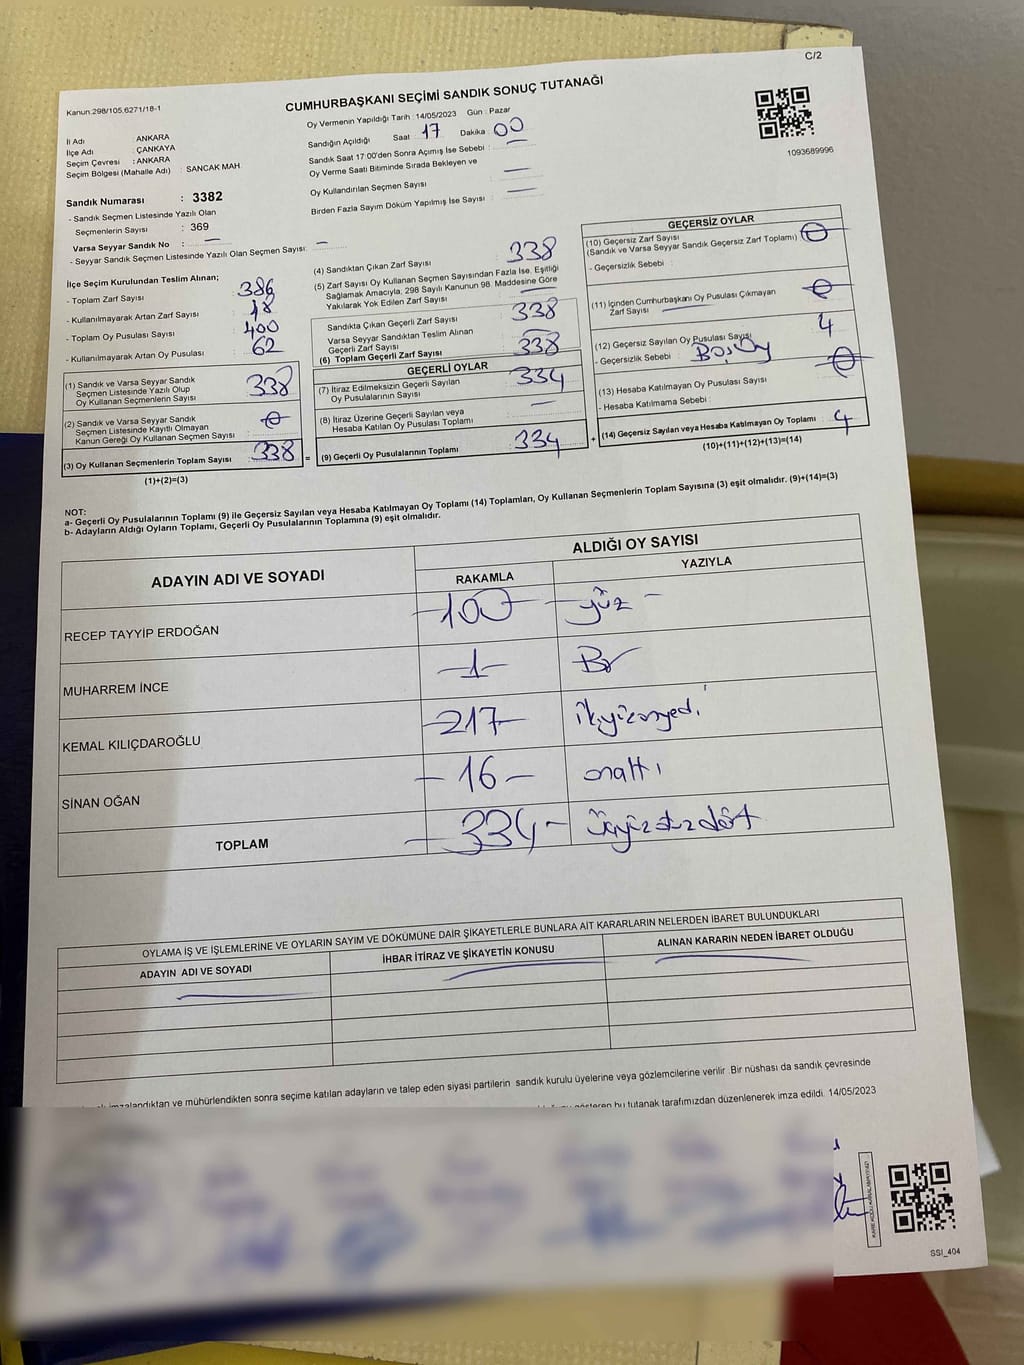 C/2
Kanun:298/105.6271/18-1
CUMHURBAŞKANI SEÇİMİ SANDIK SONUÇ TUTANAĞI
İl Adı : ANKARA
İlçe Adı : ÇANKAYA
Seçim Çevresi : ANKARA
Seçim Bölgesi (Mahalle Adı) : SANCAK MAH.
Sandık Numarası : 3382
- Sandık Seçmen Listesinde Yazılı Olan
Seçmenlerin Sayısı : 369
Varsa Seyyar Sandık No : —
- Seyyar Sandık Seçmen Listesinde Yazılı Olan Seçmen Sayısı: —
Oy Vermenin Yapıldığı Tarih : 14/05/2023 Gün : Pazar
Sandığın Açıldığı Saat 17 Dakika 00
Sandık Saat 17:00'den Sonra Açımış İse Sebebi : —
Oy Verme Saati Bitiminde Sırada Bekleyen ve
Oy Kullandırılan Seçmen Sayısı —
Birden Fazla Sayım Döküm Yapılmış İse Sayısı : —
1093689996
İlçe Seçim Kurulundan Teslim Alınan;
- Toplam Zarf Sayısı : 386
- Kullanılmayarak Artan Zarf Sayısı : 48
- Toplam Oy Pusulası Sayısı : 400
- Kullanılmayarak Artan Oy Pusulası : 62
(1) Sandık ve Varsa Seyyar Sandık
Seçmen Listesinde Yazılı Olup
Oy Kullanan Seçmenlerin Sayısı : 338
(2) Sandık ve Varsa Seyyar Sandık
Seçmen Listesinde Kayıtlı Olmayan
Kanun Gereği Oy Kullanan Seçmen Sayısı : 0
(3) Oy Kullanan Seçmenlerin Toplam Sayısı : 338
(1)+(2)=(3)
(4) Sandıktan Çıkan Zarf Sayısı : 338
(5) Zarf Sayısı Oy Kullanan Seçmen Sayısından Fazla İse, Eşitliği
Sağlamak Amacıyla, 298 Sayılı Kanunun 98. Maddesine Göre
Yakılarak Yok Edilen Zarf Sayısı : —
Sandıkta Çıkan Geçerli Zarf Sayısı : 338
Varsa Seyyar Sandıktan Teslim Alınan
Geçerli Zarf Sayısı : —
(6) Toplam Geçerli Zarf Sayısı : 338
GEÇERLİ OYLAR
(7) İtiraz Edilmeksizin Geçerli Sayılan
Oy Pusulalarının Sayısı : 334
(8) İtiraz Üzerine Geçerli Sayılan veya
Hesaba Katılan Oy Pusulası Toplamı : —
= (9) Geçerli Oy Pusulalarının Toplamı : 334 +
GEÇERSİZ OYLAR
(10) Geçersiz Zarf Sayısı
(Sandık ve Varsa Seyyar Sandık Geçersiz Zarf Toplamı) : 0
- Geçersizlik Sebebi :
(11) İçinden Cumhurbaşkanı Oy Pusulası Çıkmayan
Zarf Sayısı 0
(12) Geçersiz Sayılan Oy Pusulası Sayısı 4
- Geçersizlik Sebebi : Boş Oy
(13) Hesaba Katılmayan Oy Pusulası Sayısı 0
- Hesaba Katılmama Sebebi :
(14) Geçersiz Sayılan veya Hesaba Katılmayan Oy Toplamı : 4
(10)+(11)+(12)+(13)=(14)
NOT:
a- Geçerli Oy Pusulalarının Toplamı (9) ile Geçersiz Sayılan veya Hesaba Katılmayan Oy Toplamı (14) Toplamları, Oy Kullanan Seçmenlerin Toplam Sayısına (3) eşit olmalıdır. (9)+(14)=(3)
b- Adayların Aldığı Oyların Toplamı, Geçerli Oy Pusulalarının Toplamına (9) eşit olmalıdır.
ADAYIN ADI VE SOYADI
ALDIĞI OY SAYISI
RAKAMLA YAZIYLA
RECEP TAYYİP ERDOĞAN -100- yüz -
MUHARREM İNCE -1- Bir
KEMAL KILIÇDAROĞLU -217- ikiyüzonyedi
SİNAN OĞAN -16- onaltı
TOPLAM -334- üçyüzotuzdört
OYLAMA İŞ VE İŞLEMLERİNE VE OYLARIN SAYIM VE DÖKÜMÜNE DAİR ŞİKAYETLERLE BUNLARA AİT KARARLARIN NELERDEN İBARET BULUNDUKLARI
ADAYIN ADI VE SOYADI İHBAR İTİRAZ VE ŞİKAYETİN KONUSU ALINAN KARARIN NEDEN İBARET OLDUĞU
imzalandıktan ve mühürlendikten sonra seçime katılan adayların ve talep eden siyasi partilerin sandık kurulu üyelerine veya gözlemcilerine verilir. Bir nüshası da sandık çevresinde
gösteren bu tutanak tarafımızdan düzenlenerek imza edildi. 14/05/2023
SSİ_404